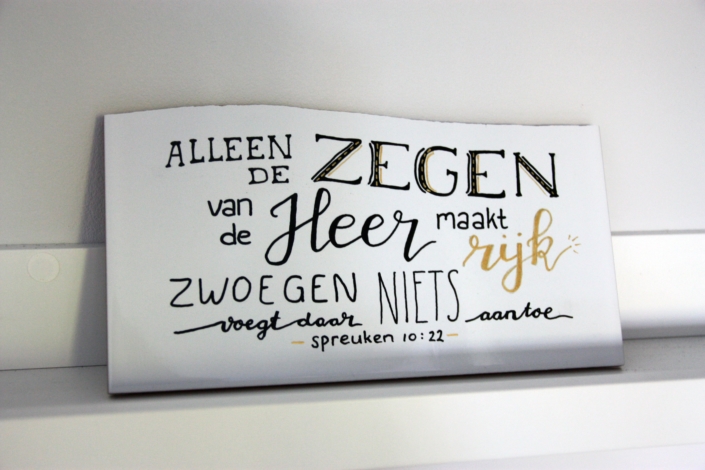 ALLEEN
DE ZEGEN
van de Heer maakt rijk
ZWOEGEN NIETS
voegt daar aan toe
spreuken 10:22